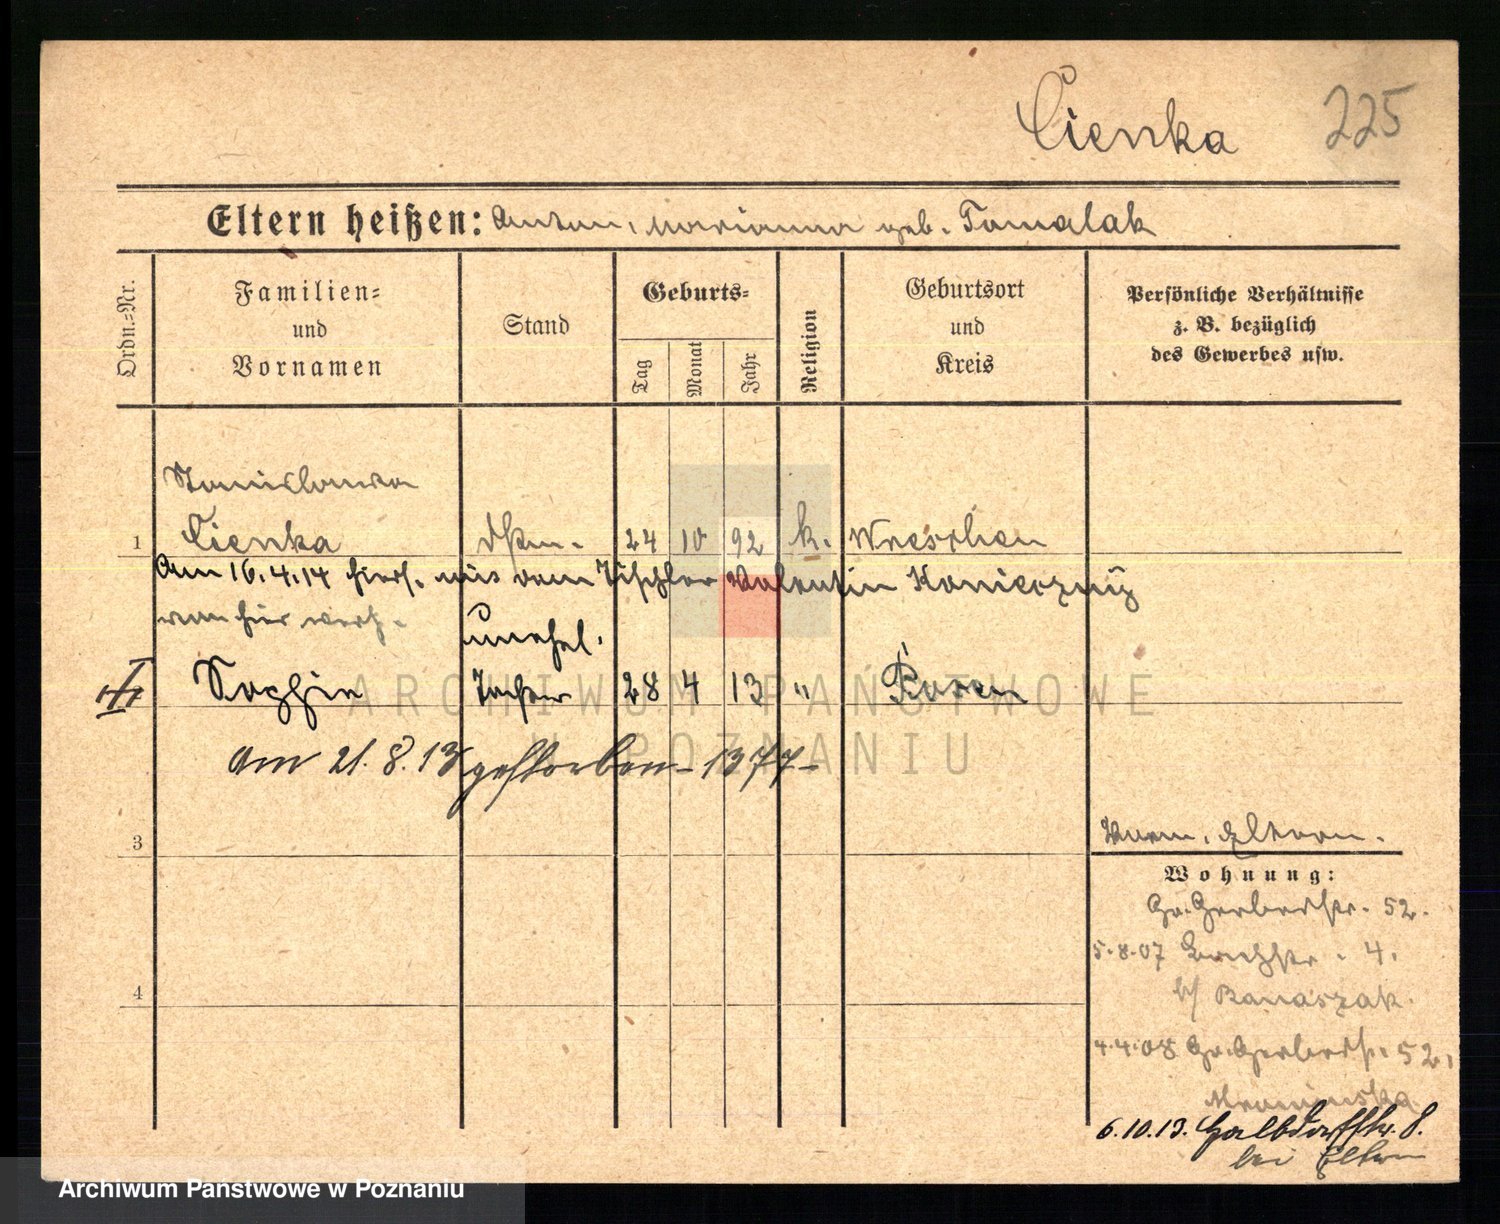 Cienka 225
Eltern heißen: Anton, Marianna geb. Tomalak
Ordn.-Nr.
Familien-
und
Vornamen
Stand
Geburts-
Tag
Monat
Jahr
Religion
Geburtsort
und
Kreis
Persönliche Verhältnisse
z. B. bezüglich
des Gewerbes usw.
Stanislawa
1 Cienka 24 10 92 k. Wreschen
Am 16.4.14 hiers. mit dem Tischler Valentin Konieczny
verh.
unehel.
Sophie Tochter 28 4 13 " Posen
Am 21. 8. 13 gestorben - 1377 -
3
4
Eltern.
Wohnung:
Gr. Gerberstr. 52.
5.8.07 4.
b/ Banaszak.
4.4.08 Gr. Gerberstr. 52,
6.10.13. Halbdorfstr. 8.
bei Eltern
ARCHIWUM PAŃSTWOWE
W POZNANIU
Archiwum Państwowe w Poznaniu